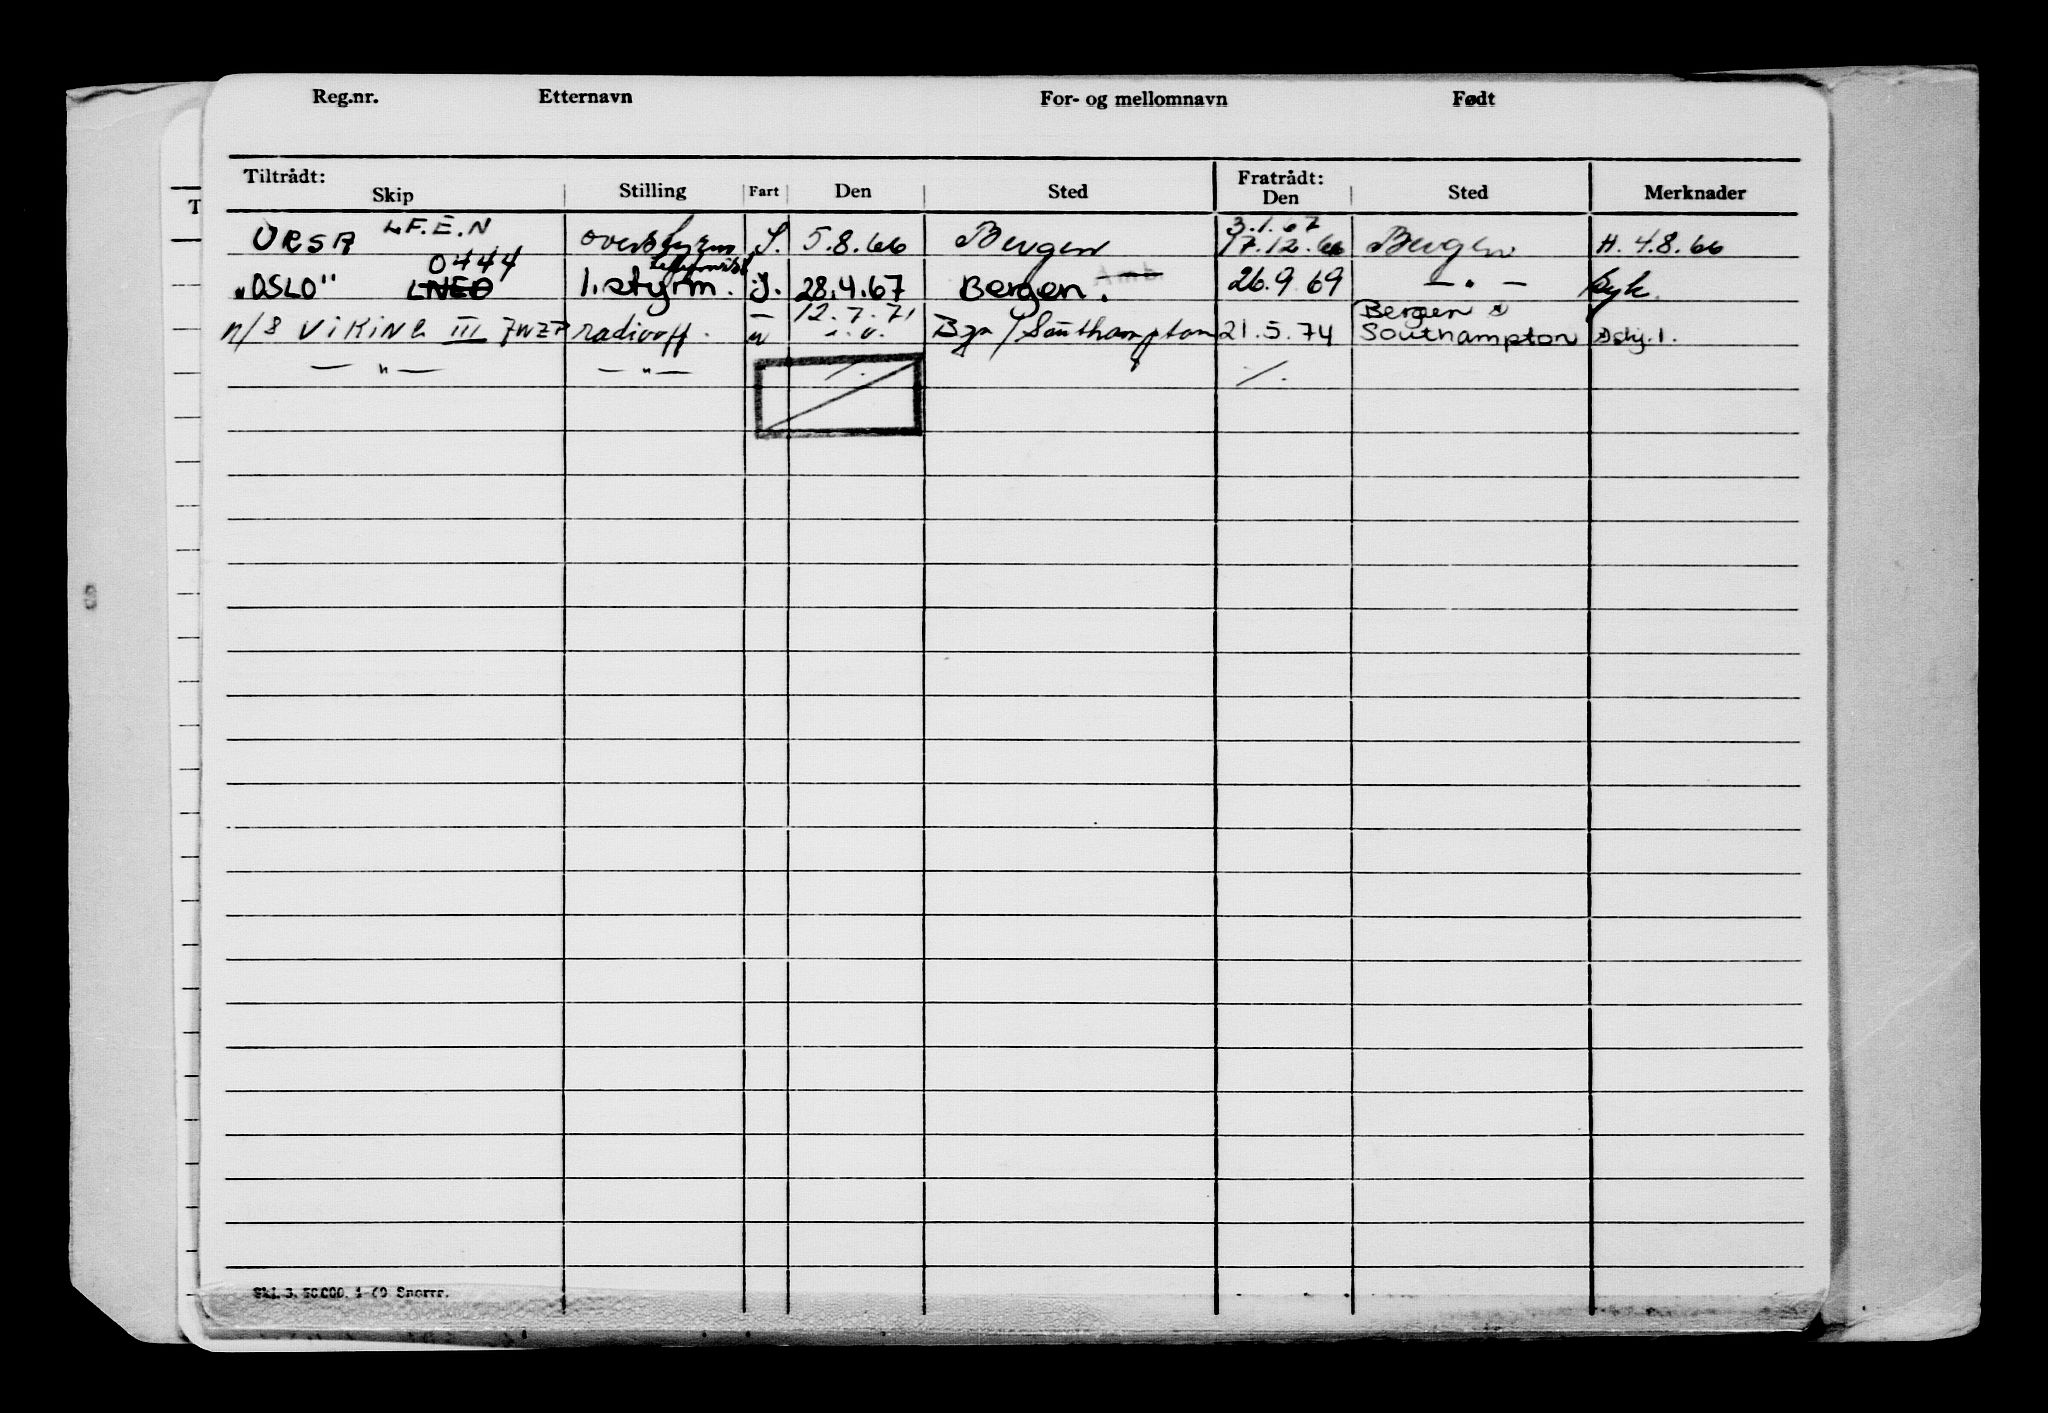 Reg.nr. Etternavn For- og mellomnavn Født
Tiltrådt: Fratrådt:
Skip Stilling Fart Den Sted Den Sted Merknader
L F.E.N 3.1.67
URSA overstyrm S. 5.8.66 Bergen 17.12.66 Bergen H. 4.8.66
0444 telefonist
"OSLO" LNEO 1.styrm. J. 28.4.67 Bergen. 26.9.69 — " —
— 12.7.71 Bergen
n/s ViKiNG III radiooff. " Bgn / Southampton 21.5.74 Southampton
— " — — " — ./. ./.
Skl. 3. 50.000. 1-60 Snorre.
T